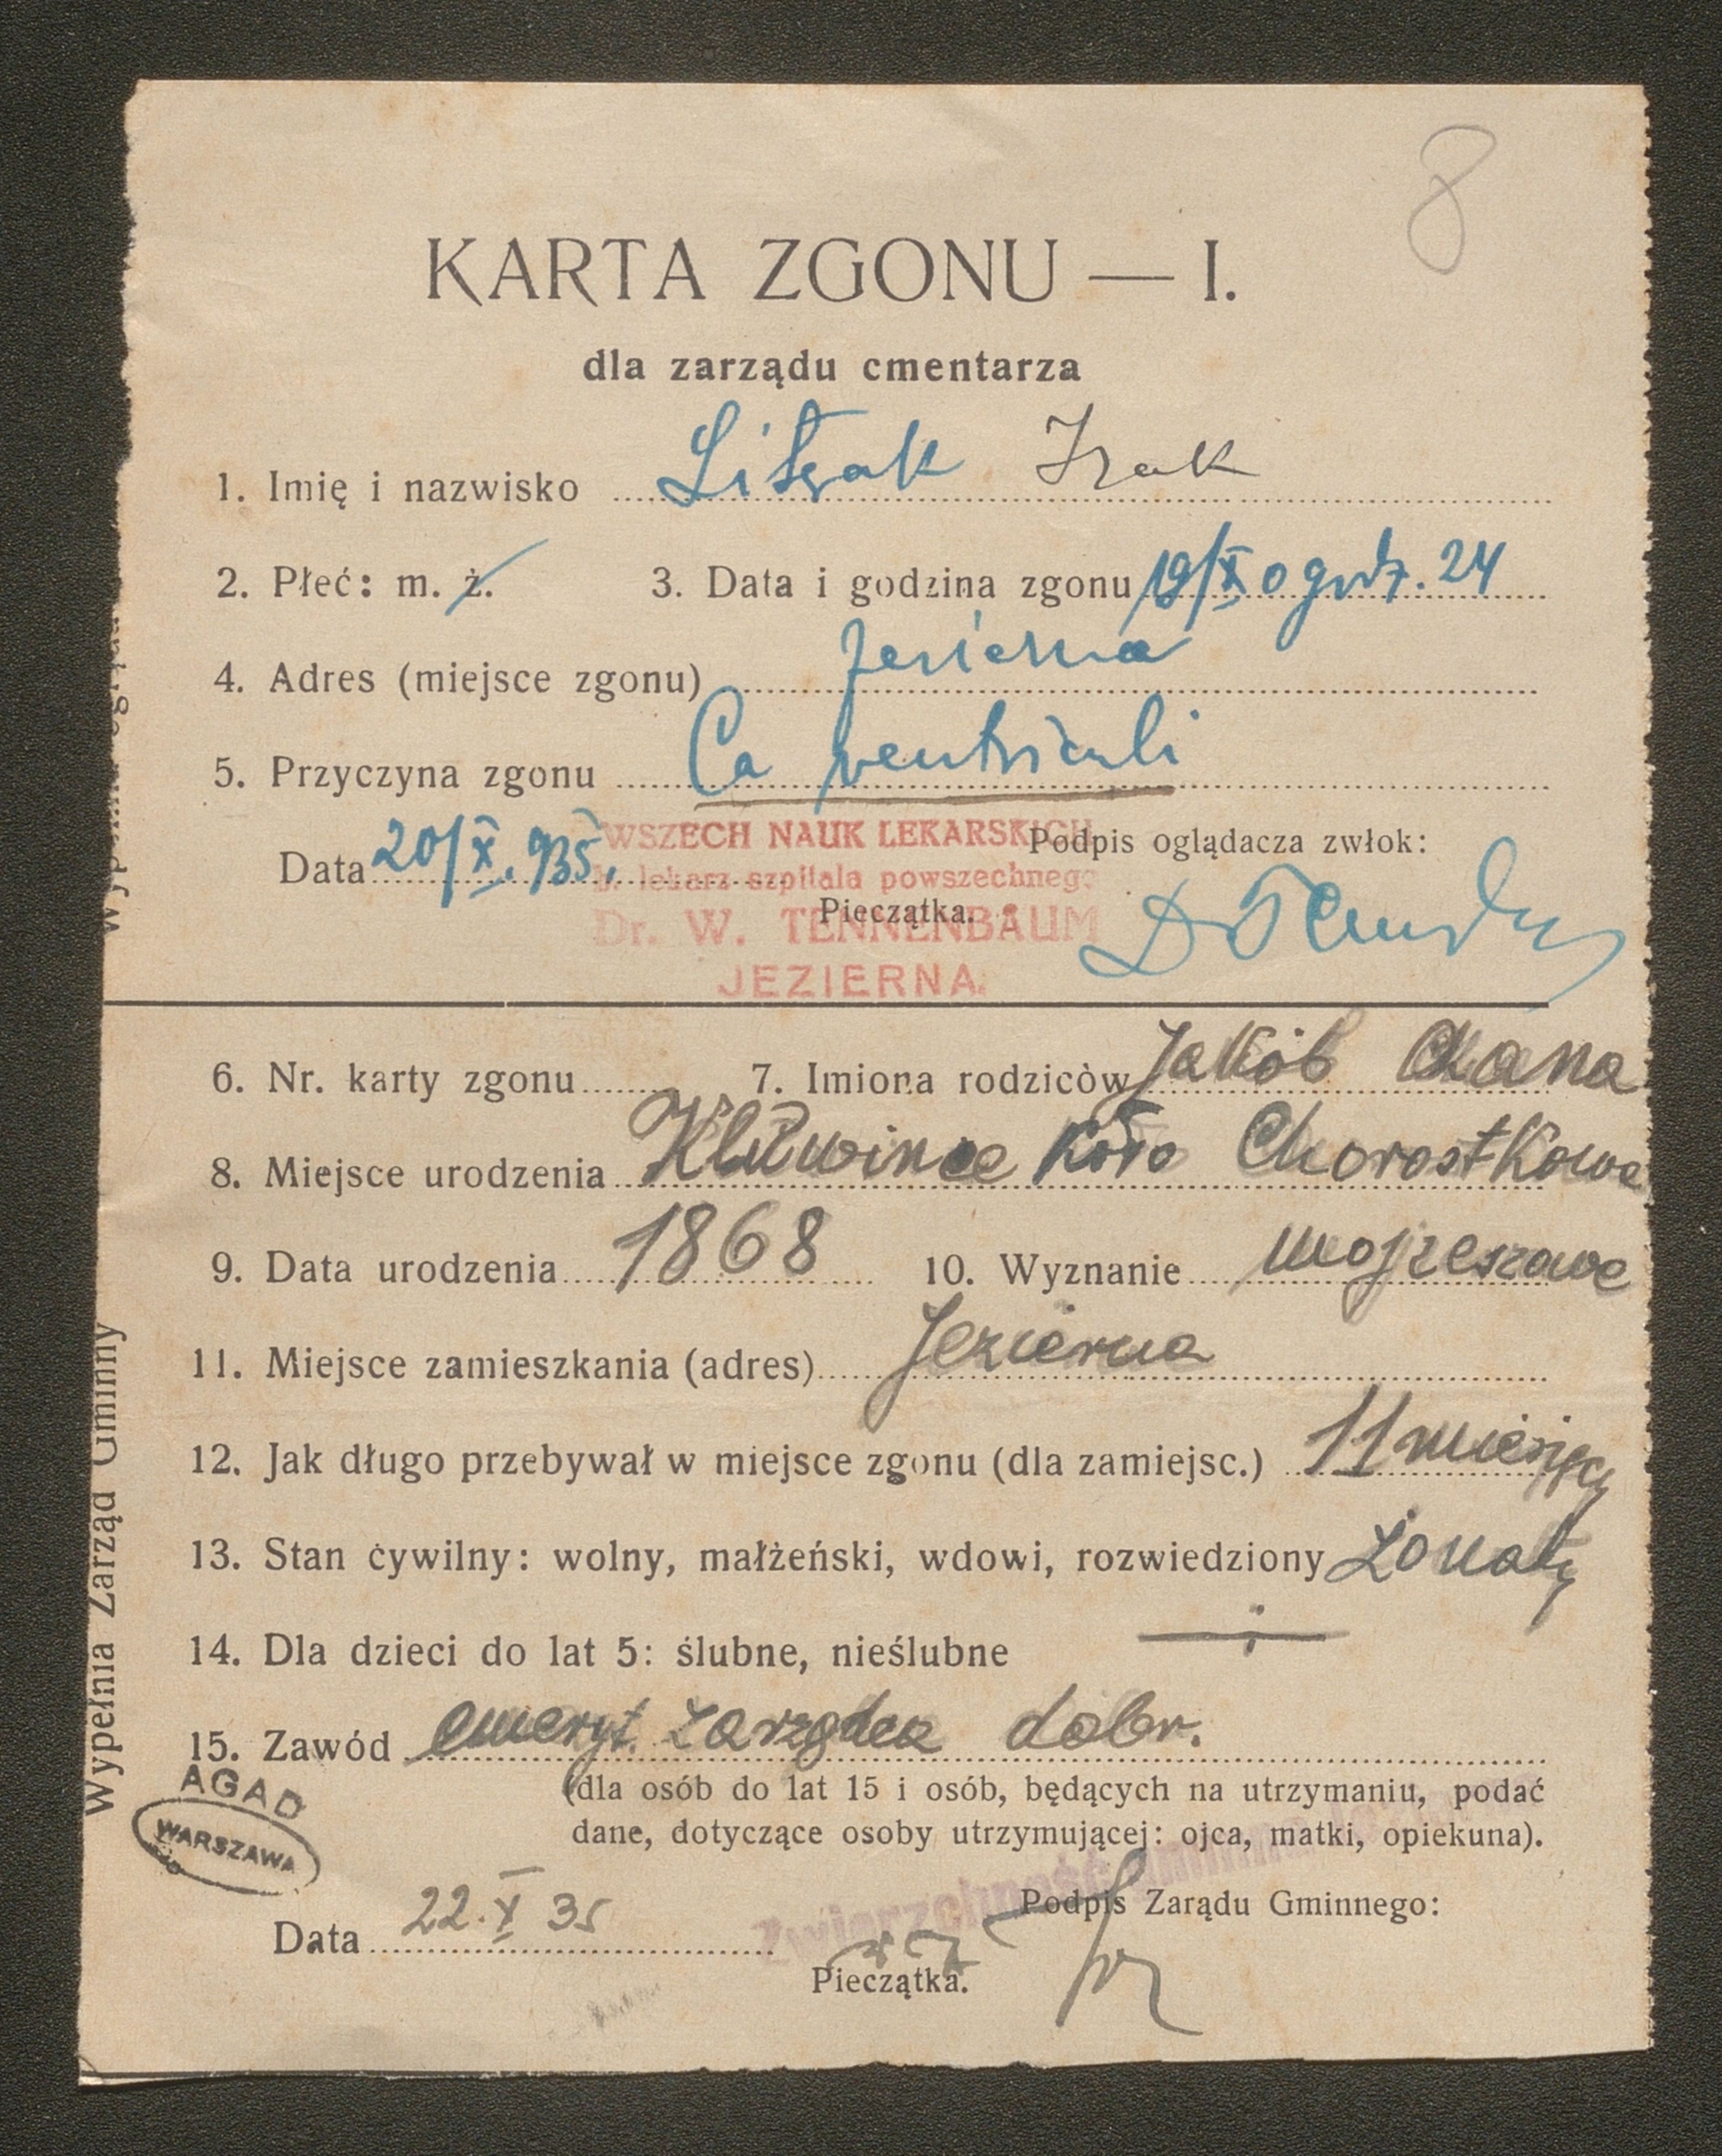 8
KARTA ZGONU — I.
dla zarządu cmentarza
1. Imię i nazwisko Litzak Izak
2. Płeć: m. ż. 3. Data i godzina zgonu 19/X o godz. 24
4. Adres (miejsce zgonu) Jezierna
5. Przyczyna zgonu Ca ventriculi
WSZECH NAUK LEKARSKICH
Podpis oglądacza zwłok:
Data 20/X. 935.
b. lekarz szpitala powszechnego
Pieczątka.
Dr. W. TENNENBAUM
JEZIERNA.
6. Nr. karty zgonu 7. Imiona rodziców Jakób Chana
8. Miejsce urodzenia Kluwince koło Chorostkowa
9. Data urodzenia 1868 10. Wyznanie mojżeszowe
11. Miejsce zamieszkania (adres) Jezierna
12. Jak długo przebywał w miejsce zgonu (dla zamiejsc.) 11 miesięcy
13. Stan cywilny: wolny, małżeński, wdowi, rozwiedziony żonaty
14. Dla dzieci do lat 5: ślubne, nieślubne
15. Zawód emeryt. zarządca dobr.
(dla osób do lat 15 i osób, będących na utrzymaniu, podać
dane, dotyczące osoby utrzymującej: ojca, matki, opiekuna).
AGAD
WARSZAWA
Zwierzchność gminna
Podpis Zarądu Gminnego:
Data 22. X 35
Pieczątka.
Wypełnia Zarząd Gminny